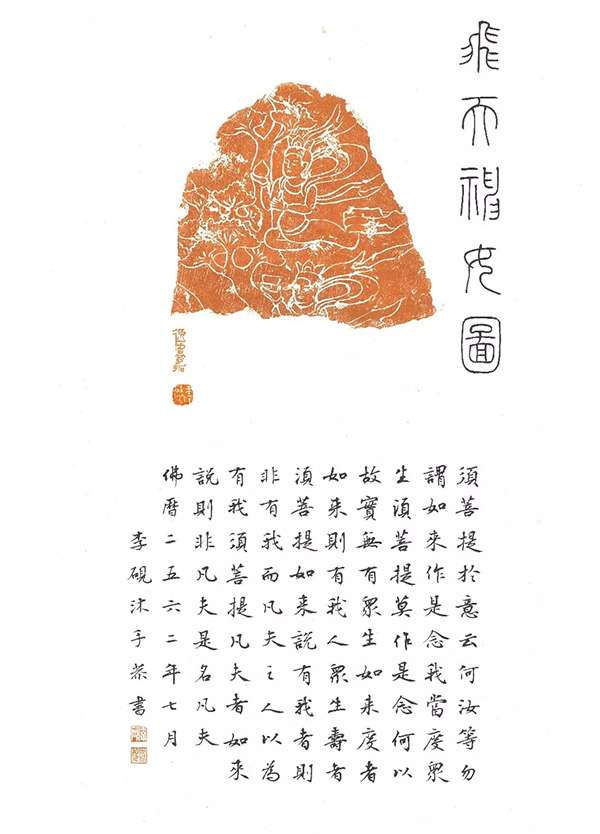 飛天神女圖
須菩提於意云何汝等勿
謂如來作是念我當度眾
生須菩提莫作是念何以
故實無有眾生如來度者
如來則有我人眾生壽者
須菩提如來說有我者則
非有我而凡夫之人以為
有我須菩提凡夫者如來
說則非凡夫是名凡夫
佛曆二五六二年七月
李硯沐手恭書